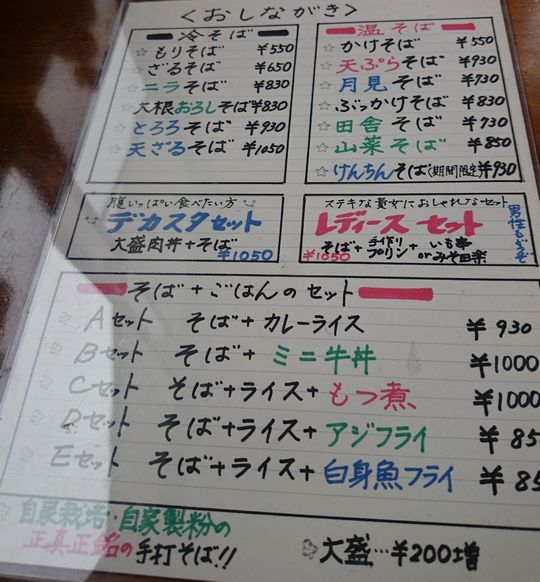 ＜おしながき＞
冷そば
☆もりそば ¥550
☆ざるそば ¥650
☆ニラそば ¥830
大根おろしそば ¥830
☆とろろそば ¥930
☆天ざるそば ¥1050
温そば
☆かけそば ¥550
☆天ぷらそば ¥930
☆月見そば ¥730
☆ぶっかけそば ¥830
☆田舎そば ¥730
☆山菜そば ¥850
☆けんちんそば(期間限定) ¥930
腹いっぱい食べたい方
デカスタセット
大盛肉丼+そば
¥1050
ステキな貴女におしゃれなセット
レディースセット
男性も
そば+手作りプリン+いも串
orみそ田楽
¥1050
そば+ごはんのセット
Aセット そば+カレーライス ¥930
Bセット そば+ミニ牛丼 ¥1000
Cセット そば+ライス+もつ煮 ¥1000
Dセット そば+ライス+アジフライ ¥85
Eセット そば+ライス+白身魚フライ ¥85
自家栽培・自家製粉の
正真正銘の手打そば!!
大盛…¥200増